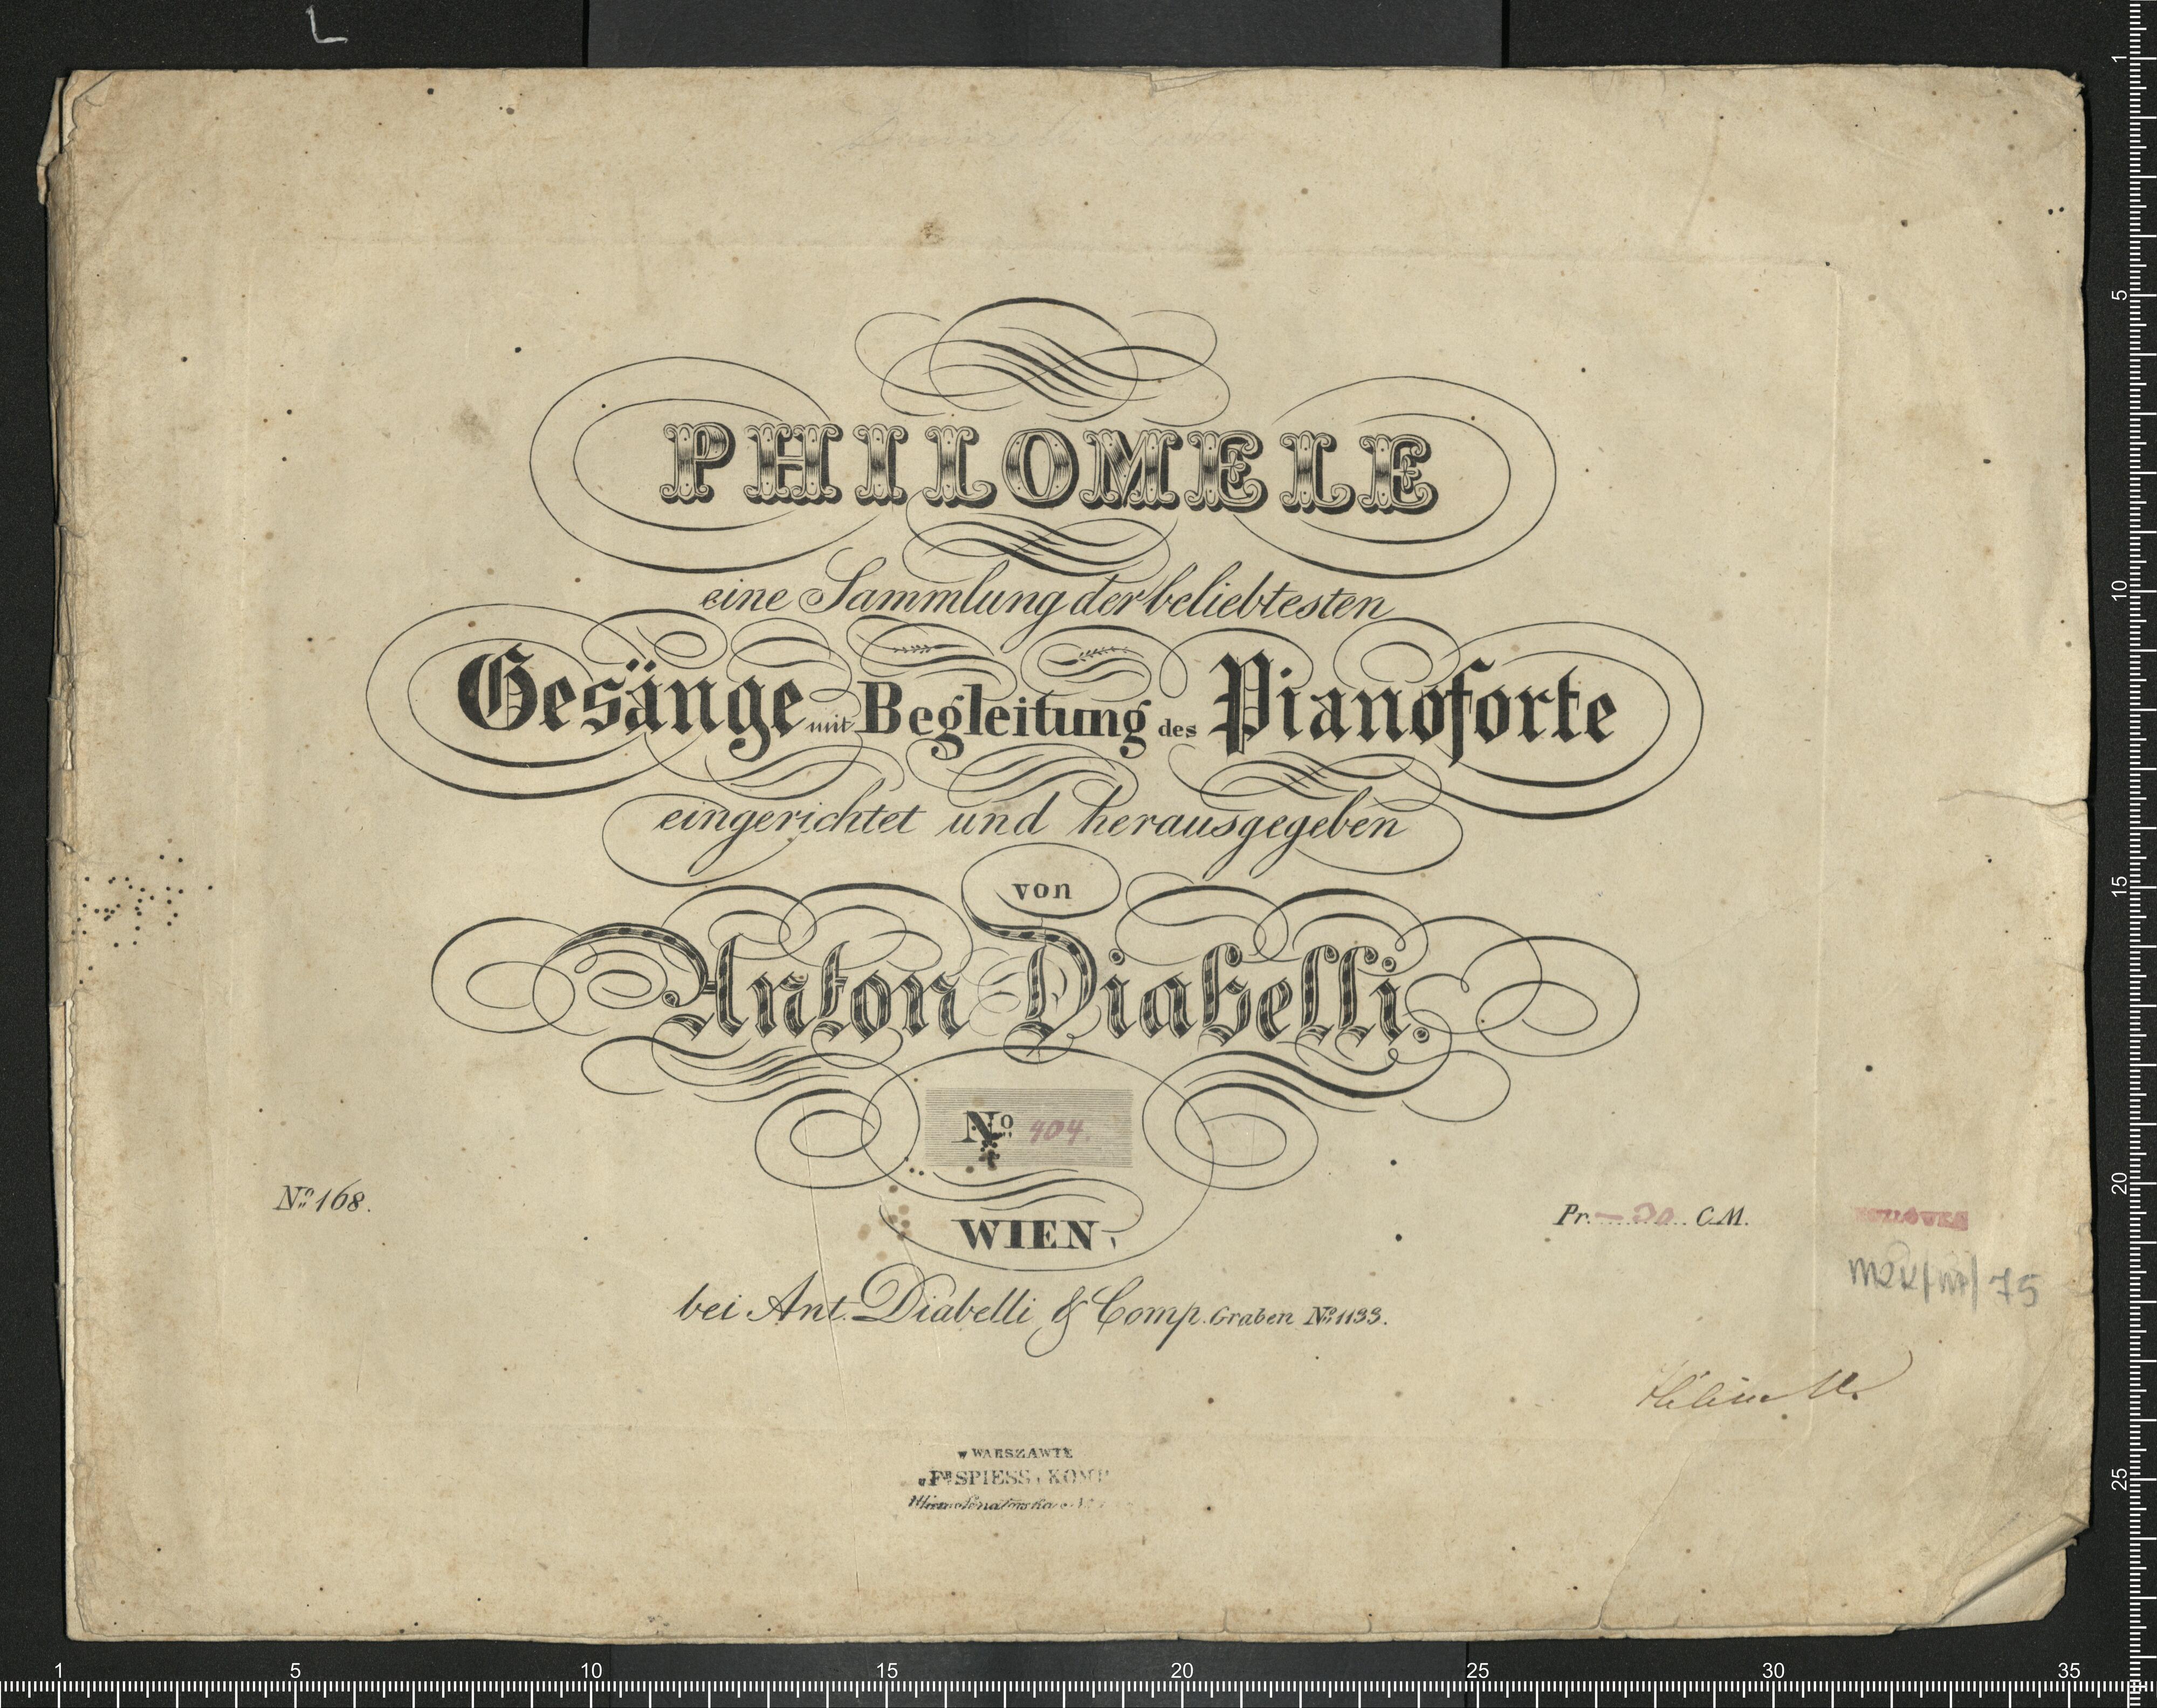 PHILOMELE
eine Sammlung der beliebtesten
Gesänge mit Begleitung des Pianoforte
eingerichtet und herausgegeben
von
Anton Diabelli.
No 404.
No. 168.
Pr. — 30 C.M.
WIEN,
bei Ant. Diabelli & Comp. Graben No. 1133.
75
w WARSZAWIE
u FR SPIESS i KOMP
1
5
10
15
20
25
1
5
10
15
20
25
30
35